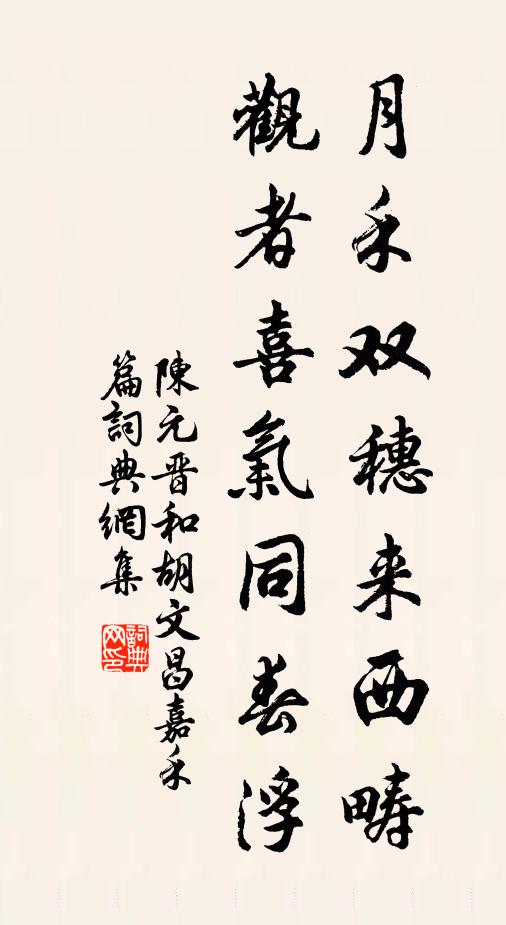 月禾双穗来西畴
觀者喜氣同春浮
陳元晋和胡文昌嘉禾
篇詞典網集
詞典
网印